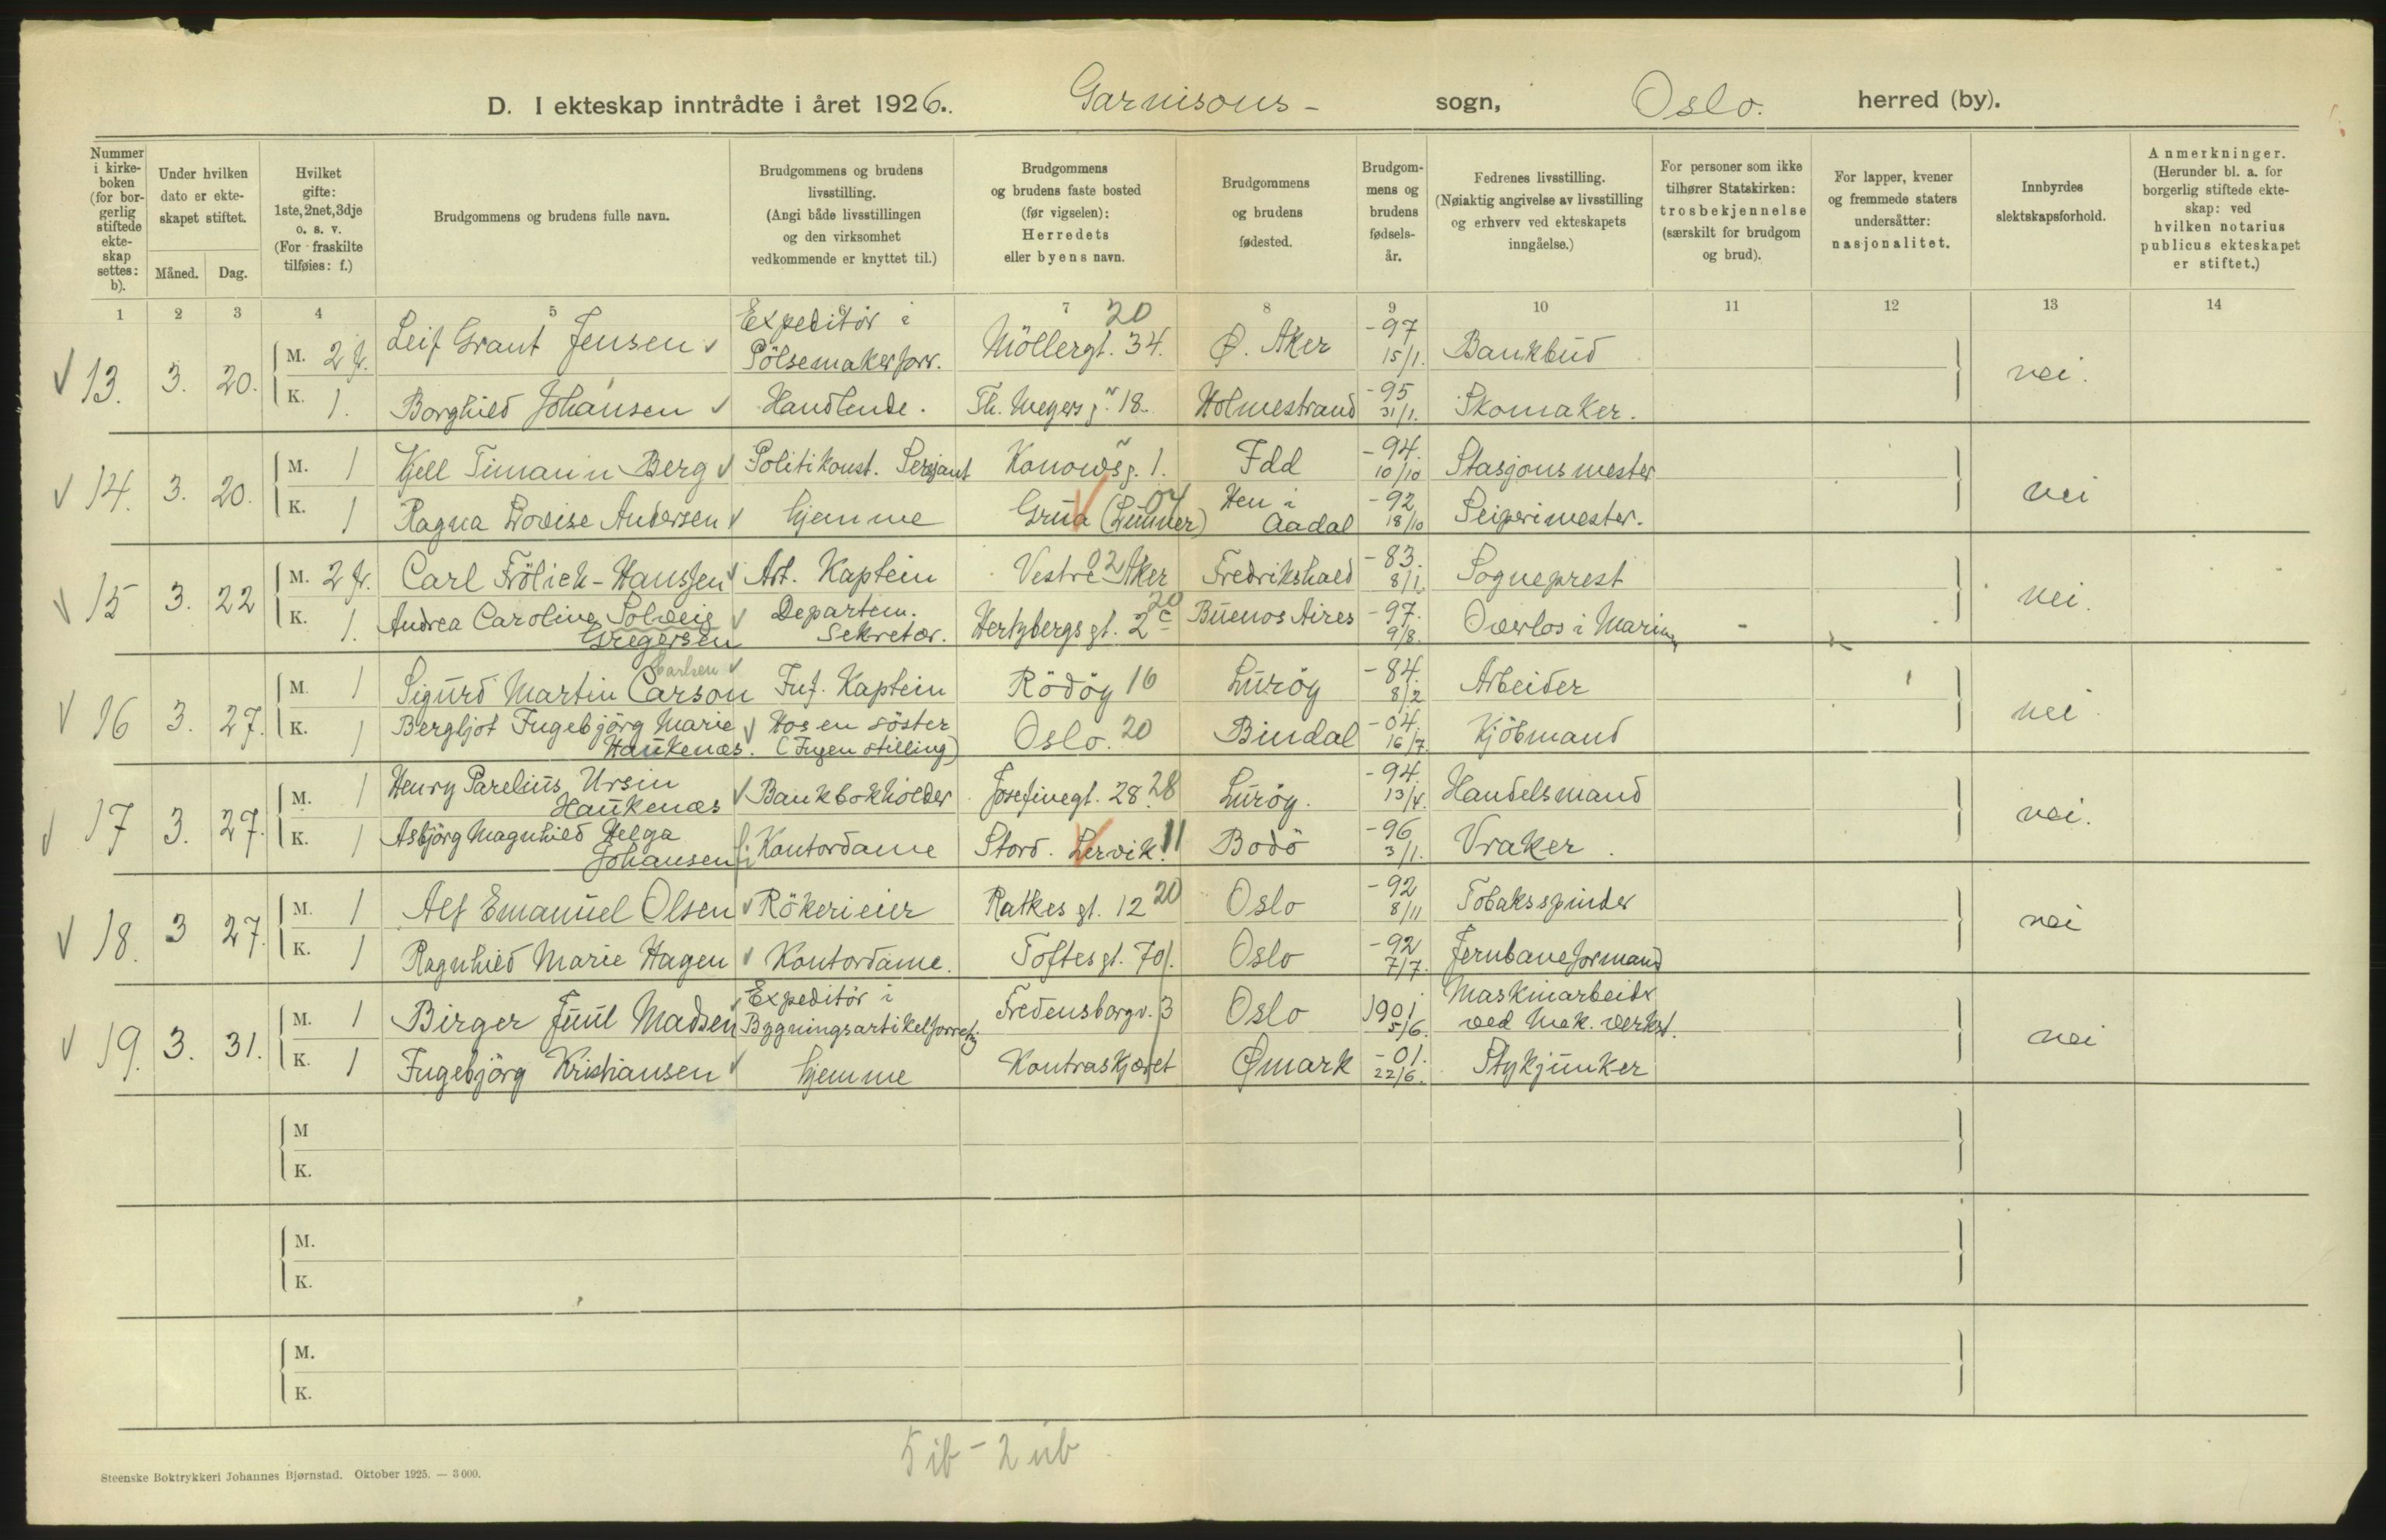 D. I ekteskap inntrådte i året 1926. Garnisons- sogn, Oslo. herred (by).
Nummer i kirkeboken (for borgerlig stiftede ekteskap settes: b).
Under hvilken dato er ekteskapet stiftet.
Måned. Dag.
Hvilket gifte: 1ste, 2net, 3dje o. s. v. (For fraskilte tilføies: f.)
Brudgommens og brudens fulle navn.
Brudgommens og brudens livsstilling. (Angi både livsstillingen og den virksomhet vedkommende er knyttet til.)
Brudgommens og brudens faste bosted (før vigselen): Herredets eller byens navn.
Brudgommens og brudens fødested.
Brudgommens og brudens fødselsår.
Fedrenes livsstilling. (Nøiaktig angivelse av livsstilling og erhverv ved ekteskapets inngåelse.)
For personer som ikke tilhører Statskirken: trosbekjennelse (særskilt for brudgom og brud).
For lapper, kvener og fremmede staters undersåtter: nasjonalitet.
Innbyrdes slektskapsforhold.
Anmerkninger. (Herunder bl. a. for borgerlig stiftede ekteskap: ved hvilken notarius publicus ekteskapet er stiftet.)
1 2 3 4 5 6 7 8 9 10 11 12 13 14
13. 3. 20. M. 2 f. Leif Grant Jensen Expeditör i Pölsemakerforr. Möllergt. 34. 20 Ø. Aker -97 15/1. Bankbud nei.
K. 1. Borghild Johansen Handlende. Th. Meyers g. 18. Holmestrand -95 31/1. Skomaker.
14. 3. 20. M. 1 Kjell Timann Berg Politikonst. Sersjant Konowsg. 1. Fdd -94. 10/10 Stasjonsmester nei
K. 1 Ragna Lovise Andersen hjemme Grua (Lunner) 04 Hen i Aadal -92 18/10 Sliperimester.
15 3. 22 M. 2 f. Carl Frölich-Hanssen Art. Kaptein Vestre Aker 02 Fredrikshald -83. 8/1. Sogneprest nei.
K. 1. Andrea Caroline Solveig Gregersen Departem. Sekretær. Hertzbergs gt. 2c 20 Buenos Aires -97. 9/8. Overlos i Marinen
16 3. 27. M. 1 Sigurd Martin Carson Carlsen Inf. Kaptein Rödöy 16 Luröy -84. 8/2 Arbeider nei.
K. 1 Bergljot Ingebjörg Marie Haukenæs. Hos en söster (Ingen stilling) Oslo. 20 Bindal -04. 16/7. Kjöbmand
17 3. 27. M. 1 Henry Parelius Ursin Haukenæs Bankbokholder Josefinegt. 28. 28 Luröy. -94. 13/4. Handelsmand nei.
K. 1 Asbjörg Magnhild Helga Johansen Kontordame Stord. Lervik. 11 Bodö -96 3/1. Vraker.
18. 3 27. M. 1 Alf Emanuel Olsen Rökerieier Ratkes gt. 12 20 Oslo -92 8/11 Tobaksspinder nei
K. 1 Ragnhild Marie Hagen Kontordame. Toftes gt. 70 Oslo -92 7/7. Jernbaneformand
19. 3. 31. M. 1 Birger Juul Madsen Expeditör i Bygningsartikelforretg Fredensborgv. 3 Oslo 1901 5/6. Maskinarbeider ved Mek. verkst. nei
K. 1 Ingebjörg Kristiansen hjemme Kontraskjæret Ømark -01. 22/6. Stykjunker
M
K.
M.
K.
M.
K.
5 ib - 2 ub
Steenske Boktrykkeri Johannes Bjørnstad. Oktober 1925. — 3 000.